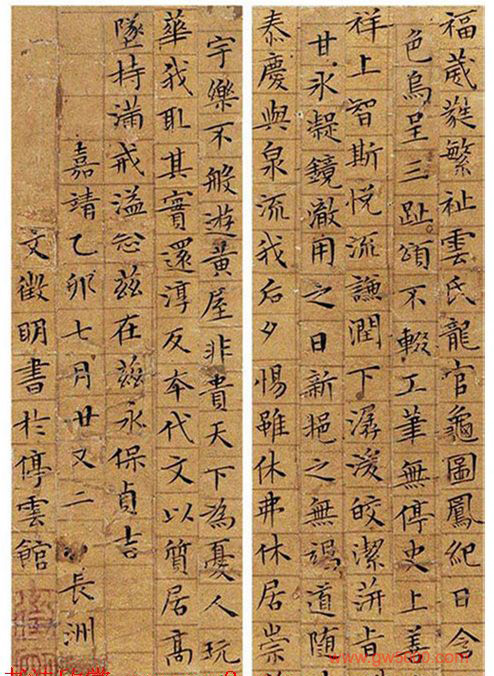 福葳蕤繁祉雲氏龍官龜圖鳳紀日含
色烏呈三趾頌不輟工筆無停史上善
祥上智斯悅流謙潤下潺湲皎潔蓱旨
甘氷凝鏡澈用之日新挹之無竭道随
泰慶與泉流我后夕惕雖休弗休居崇
宇樂不般遊黃屋非貴天下為憂人玩
華我取其實還淳反本代文以質居高
墜持滿戒溢念茲在茲永保貞吉
嘉靖乙卯七月廿又二日長洲
文徵明書於停雲館